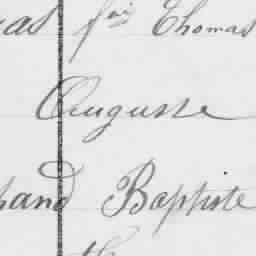 as fois Thomas
Auguste
hand Baptiste